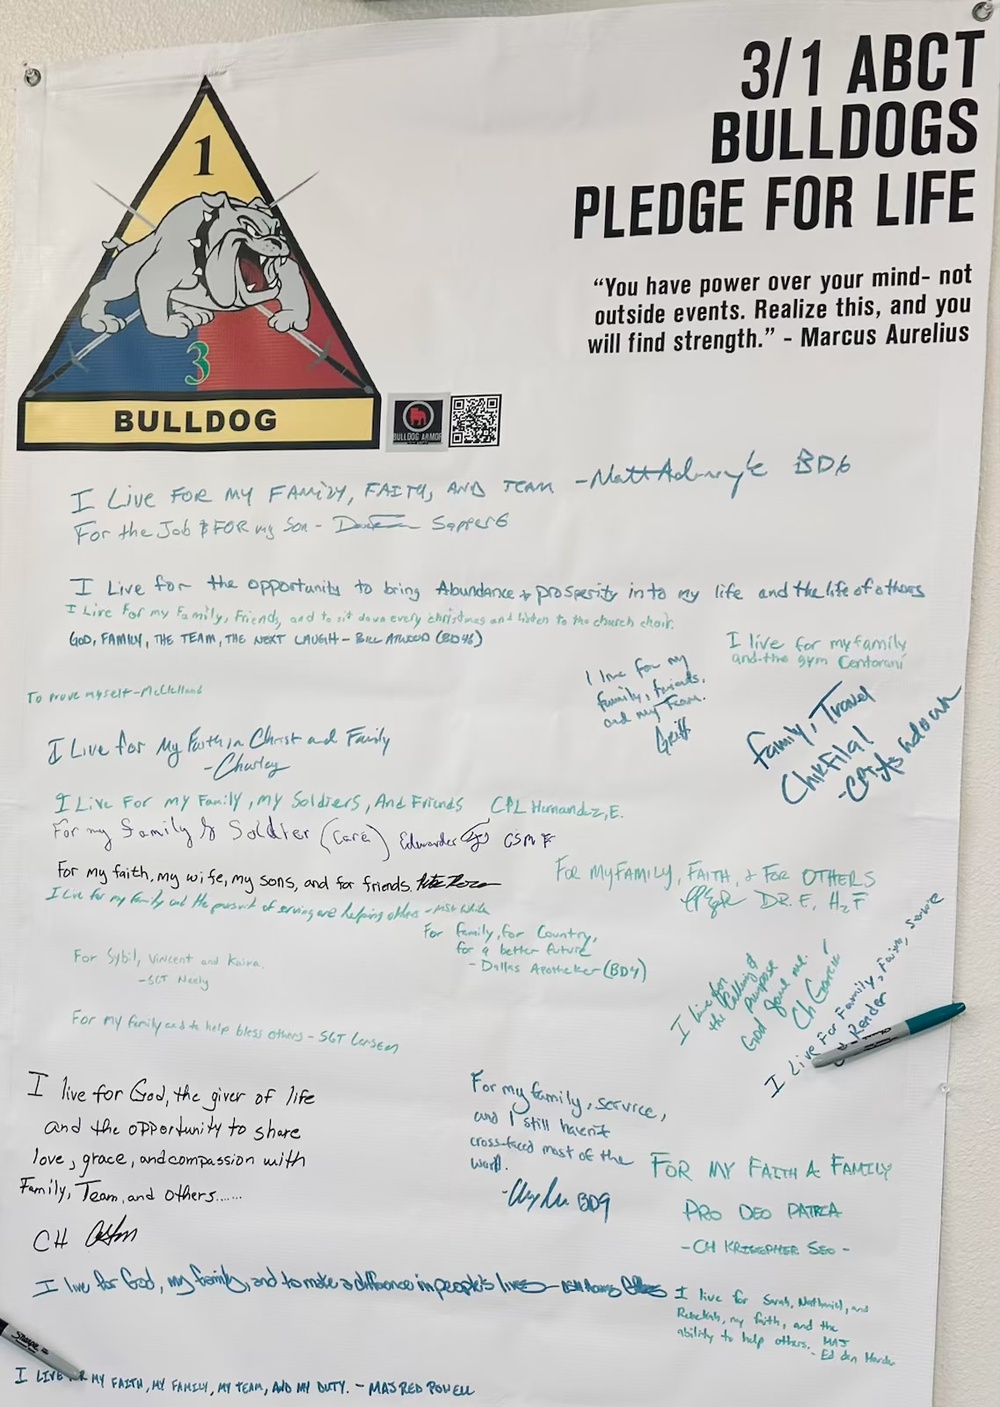 3/1 ABCT
BULLDOGS
PLEDGE FOR LIFE
"You have power over your mind- not
outside events. Realize this, and you
will find strength." - Marcus Aurelius
1
3
BULLDOG
BULLDOG ARMOR
I LIVE FOR MY FAMILY, FAITH, AND TEAM - Matt BD6
For the Job & FOR my Son - Sapper6
I Live for the opportunity to bring Abundance + prosperity into my life and the life of others
I Live For my Family, Friends, and to sit down every christmas and listen to the church choir.
GOD, FAMILY, THE TEAM, THE NEXT LAUGH - BILL ATWOOD (BD46)
I live for my family
and the gym Centorani
I live for my
family, friends,
and my Team.
Griff
To prove myself - McClelland
Family, Travel
ChikFilA!
I Live for My Faith in Christ and Family
- Charley
I Live For my Family, my Soldiers, And Friends CPL Hernandez, E.
For my family & Soldier (Care) CSM
For my faith, my wife, my sons, and for friends.
FOR MY FAMILY, FAITH, + FOR OTHERS
DR. E, H2F
I Live for my family and the pursuit of serving and helping others - MSG White
For family, for Country,
for a better future
- Dallas Apotheker (BD4)
For Sybil, Vincent and Kaira.
- SGT Neely
I live for
the calling &
purpose
God gave me.
Ch Garcia
I Live For Family, Faith, Service
Render
For my family and to help bless others - SGT Larsen
I live for God, the giver of life
and the opportunity to share
love, grace, and compassion with
Family, Team, and others......
CH
For my family, service,
and I still haven't
cross-faced most of the
world.
- BD9
FOR MY FAITH & FAMILY
PRO DEO PATRIA
- CH KRISTOPHER SEO -
I live for God, my family, and to make a difference in people's lives
I live for Sarah, Nathaniel, and
Rebekah, my faith, and the
ability to help others. MAJ
- Ed den Harder
Sharpie
I LIVE FOR MY FAITH, MY FAMILY, MY TEAM, AND MY DUTY. - MAJ RED POWELL